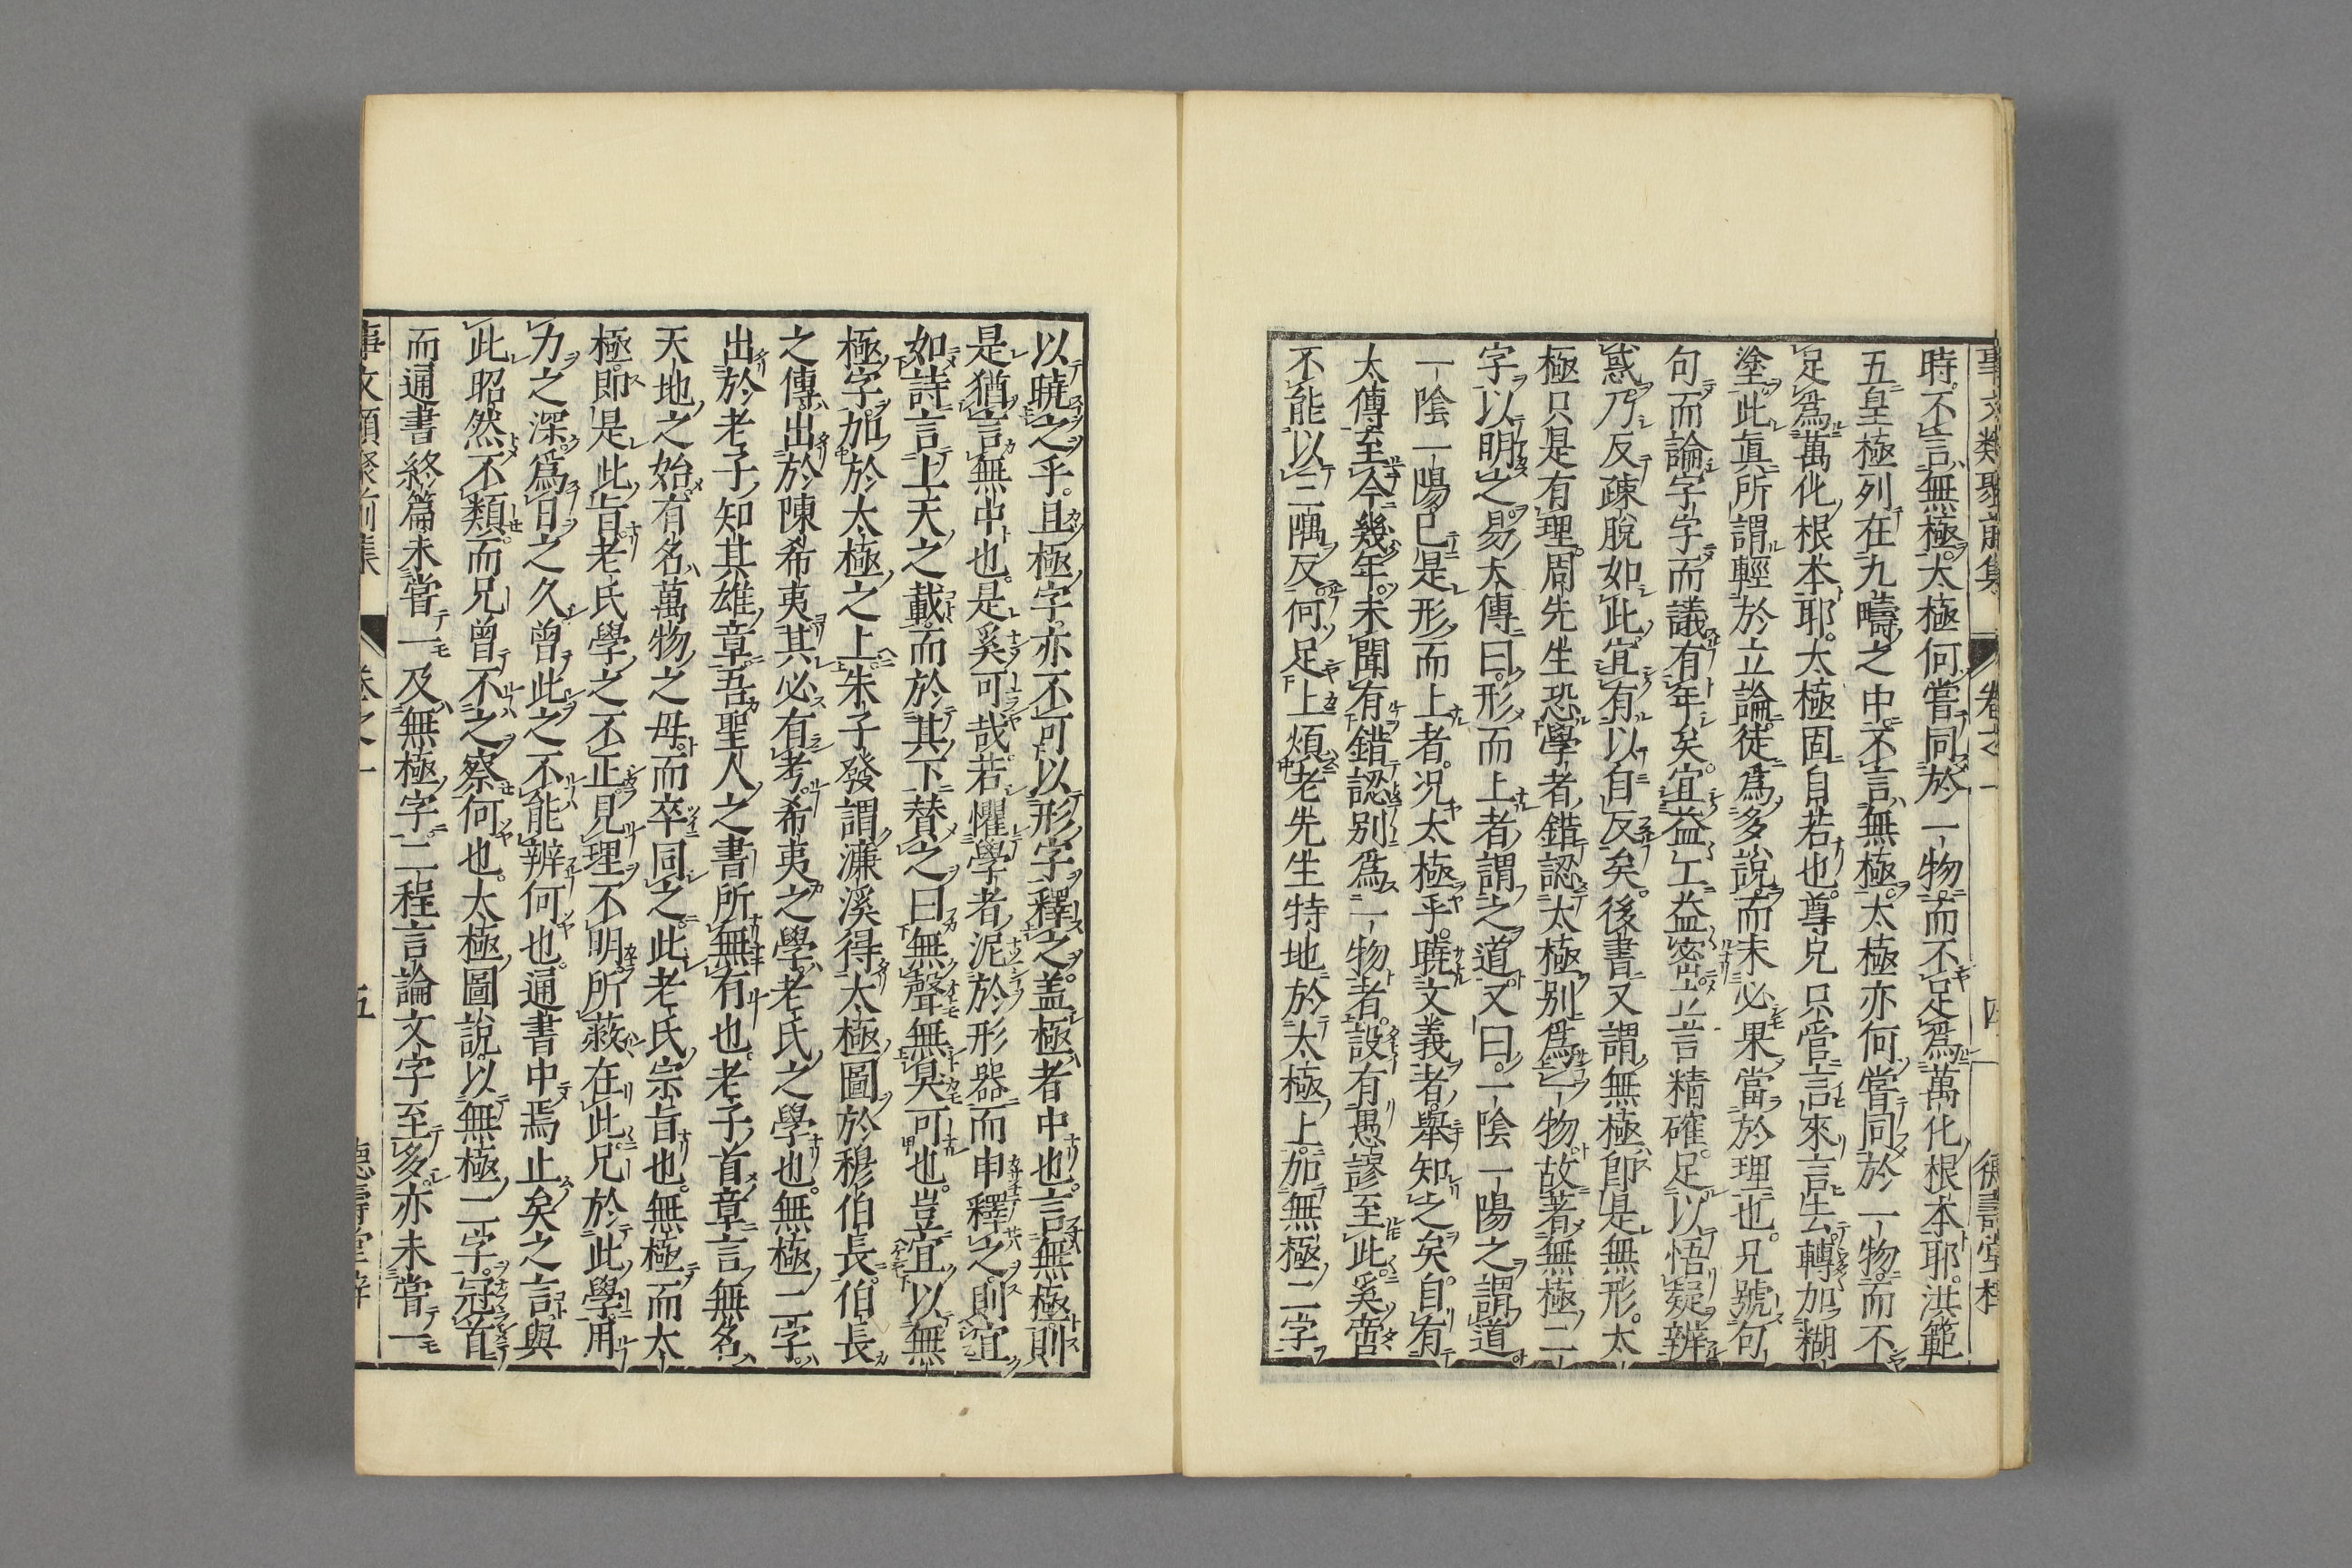 事文類聚前集 卷之一 四 德壽堂梓
時不言無極太極何嘗同於一物而不足爲萬化根本耶洪範
五皇極列在九疇之中不言無極太極亦何嘗同於一物而不
足爲萬化根本耶太極固自若也尊兄只管言來言去轉加糊
塗此眞所謂輕於立論徒爲多說而未必果當於理也兄號句
句而論字字而議有年矣宜益工益密立言精確足以悟疑辨
惑乃反疎脫如此宜有以自反矣後書又謂無極卽是無形太
極只是有理周先生恐學者錯認太極別爲一物故著無極二
字以明之易太傳曰形而上者謂之道又曰一陰一陽之謂道
一陰一陽已是形而上者况太極乎曉文義者舉知之矣自有
太傳至今幾年未聞有錯認別爲一物者設有愚謬至此奚啻
不能以三隅反何足上煩老先生特地於太極上加無極二字
以曉之乎且極字亦不可以形字釋之盖極者中也言無極則
是猶言無中也是奚可哉若懼學者泥於形器而申釋之則宜
如詩言上天之載而於其下替之曰無聲無臭可也豈宜以無
極字加於太極之上朱子發謂濂溪得太極圖於穆伯長伯長
之傳出於陳希夷其必有考希夷之學老氏之學也無極二字
出於老子知其雄章吾聖人之書所無有也老子首章言無名
天地之始有名萬物之母而卒同之此老氏宗旨也無極而太
極卽是此旨老氏學之不正見理不明所蔽在此兄於此學用
力之深爲日之久曾此之不能辨何也通書中焉止矣之言與
此昭然不類而兄曾不之察何也太極圖說以無極二字冠首
而通書終篇未嘗一及無極字二程言論文字至多亦未嘗一
事文類聚前集 卷之一 五 德壽堂梓